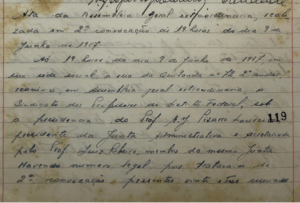 Ata da Assembléia Geral extraordinária, reali-
zada em 2ª convocação às 19 horas do dia 9 de
Junho de 1947
Às 19 horas do dia 9 de Junho de 1947, em
sua sede social, à rua da Quitanda nº 12 2º andar,
reuniu, em assembléia geral extraordinária, o
Sindicato dos Professores do Distrito Federal, sob
a presidencia do Prof.
119
presidente da Junta Administrativa e secretariada
pelo Prof. Luis membro da mesma Junta
Havendo numero legal por tratar-se de
2ª convocação presentes vinte e